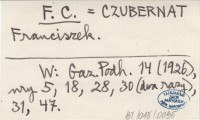 F. C. = CZUBERNAT
Franciszek.
W: Gaz. Podh. 14 (1926),
nry 5, 18, 28, 30 (dwa razy),
31, 47.